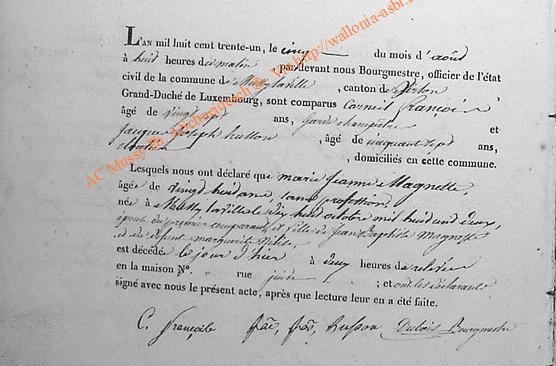 L'AN mil huit cent trente-un, le cinq du mois d'août
à huit heures du matin, par devant nous Bourgmestre, officier de l'état
civil de la commune de Mussy la ville, canton de Virton
Grand-Duché de Luxembourg, sont comparus Corneil François
âgé de vingt sept ans, Garde champêtre et
jacques joseph husson, âgé de cinquante sept ans,
, domiciliés en cette commune.
Lesquels nous ont déclaré que marie jeanne Magnette,
âgée de vingt huit ans, sans profession,
née à Mussy la ville le dix huit octobre mil huit cent deux,
épouse du premier comparant, et fille de Jean Baptiste Magnette
et de défunt marguerite
est décédée le jour d'hier à deux heures de relevée
en la maison N°. " rue ; et ont les déclarants
signé avec nous le présent acte, après que lecture leur en a été faite.
C. françois husson Dubois Bourgmestre
AC Mussy http://wallonia-asbl.